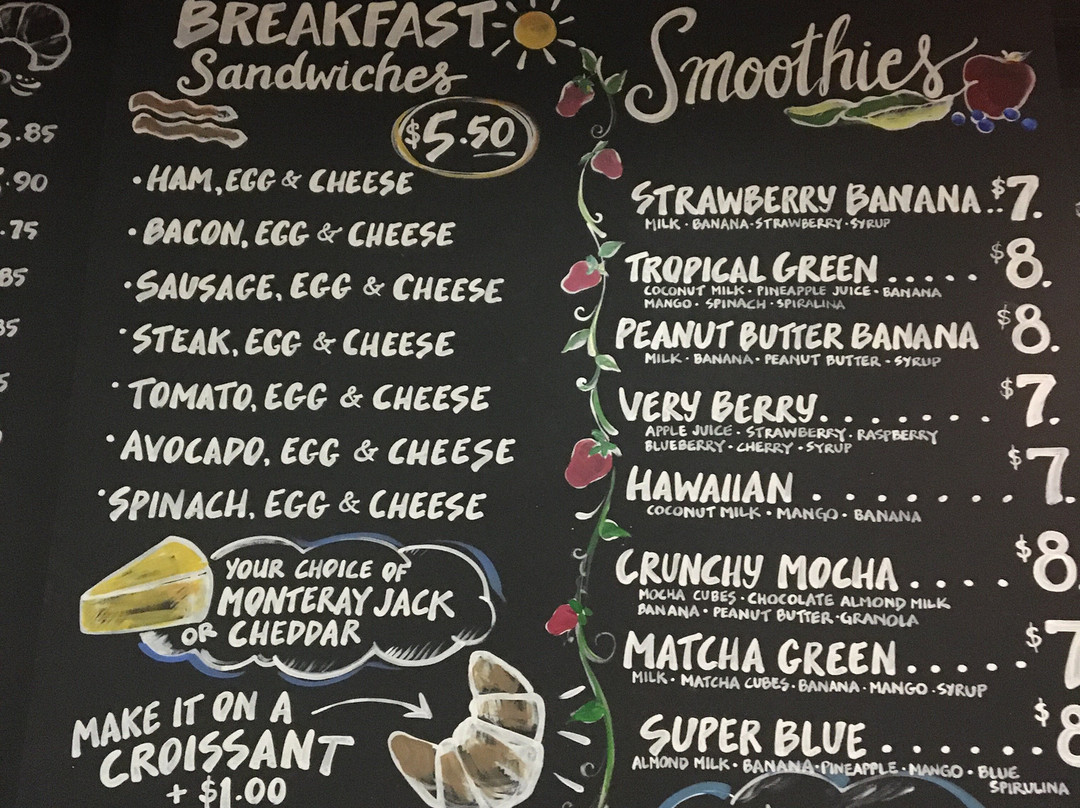 .85
.90
.75
85
BREAKFAST
Sandwiches
$5.50
• HAM, EGG & CHEESE
• BACON, EGG & CHEESE
• SAUSAGE, EGG & CHEESE
• STEAK, EGG & CHEESE
• TOMATO, EGG & CHEESE
• AVOCADO, EGG & CHEESE
• SPINACH, EGG & CHEESE
YOUR CHOICE OF
MONTERAY JACK
OR CHEDDAR
MAKE IT ON A
CROISSANT
+ $1.00
Smoothies
STRAWBERRY BANANA..$7.
MILK • BANANA • STRAWBERRY • SYRUP
TROPICAL GREEN ..... $8.
COCONUT MILK • PINEAPPLE JUICE • BANANA
MANGO • SPINACH • SPIRALINA
PEANUT BUTTER BANANA $8.
MILK • BANANA • PEANUT BUTTER • SYRUP
VERY BERRY....... $7.
APPLE JUICE • STRAWBERRY • RASPBERRY
BLUEBERRY • CHERRY • SYRUP
HAWAIIAN ....... $7.
COCONUT MILK • MANGO • BANANA
CRUNCHY MOCHA .... $8
MOCHA CUBES • CHOCOLATE ALMOND MILK
BANANA • PEANUT BUTTER • GRANOLA
MATCHA GREEN ..... $7
MILK • MATCHA CUBES • BANANA • MANGO • SYRUP
SUPER BLUE ....... $8
ALMOND MILK • BANANA • PINEAPPLE • MANGO • BLUE
SPIRULINA